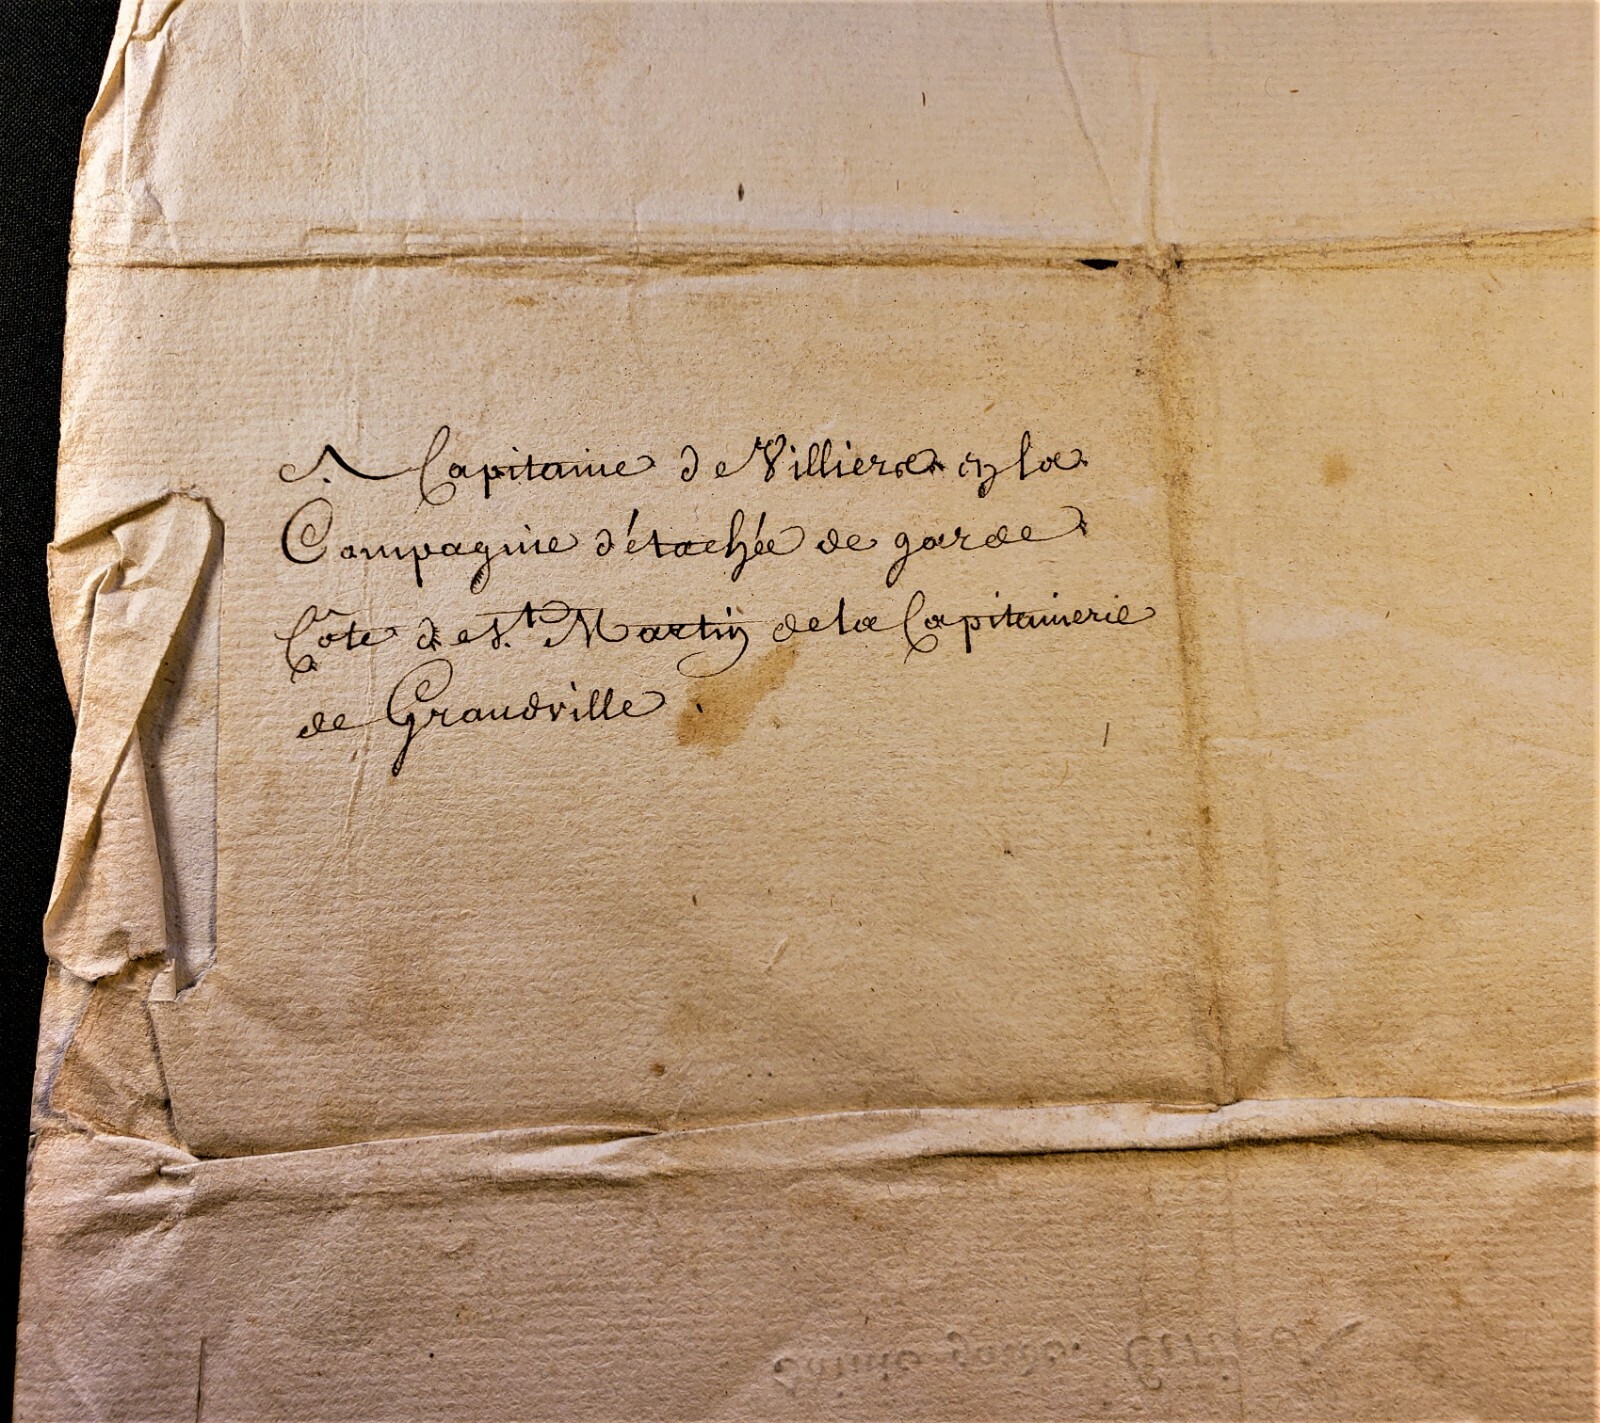 A Capitaine de Villiers en la
Compagnie détachée de garde
Côte de St. Martin de la Capitainerie
de Grandville.